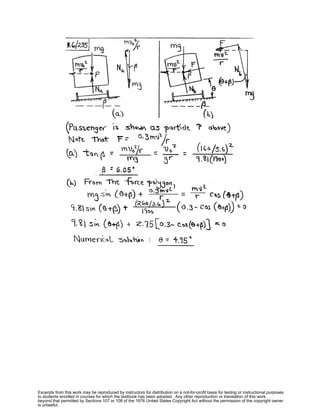 *6/235
mg
mv₀²/r
Na
β
mg
mg
F
mv²/r
Nb
mv₀²/r
P
Na
β
mv²/r
F
Nb
θ
(θ+β)
β
mg
(a)
(b)
(Passenger is shown as particle P above)
Note that F = 0.3mv²/r
(a) tan β = (mv₀²/r)/mg = v₀²/gr = (160/3.6)²/9.81(1900)
β = 6.05°
(b) From the force polygon,
mg sin (θ+β) + 0.3mv²/r = mv²/r cos (θ+β)
9.81 sin (θ+β) + (260/3.6)²/1900 (0.3 - cos (θ+β)) = 0
9.81 sin (θ+β) + 2.75 [0.3 - cos(θ+β)] = 0
Numerical solution : θ = 4.95°
Excerpts from this work may be reproduced by instructors for distribution on a not-for-profit basis for testing or instructional purposes
to students enrolled in courses for which the textbook has been adopted. Any other reproduction or translation of this work
beyond that permitted by Sections 107 or 108 of the 1976 United States Copyright Act without the permission of the copyright owner
is unlawful.